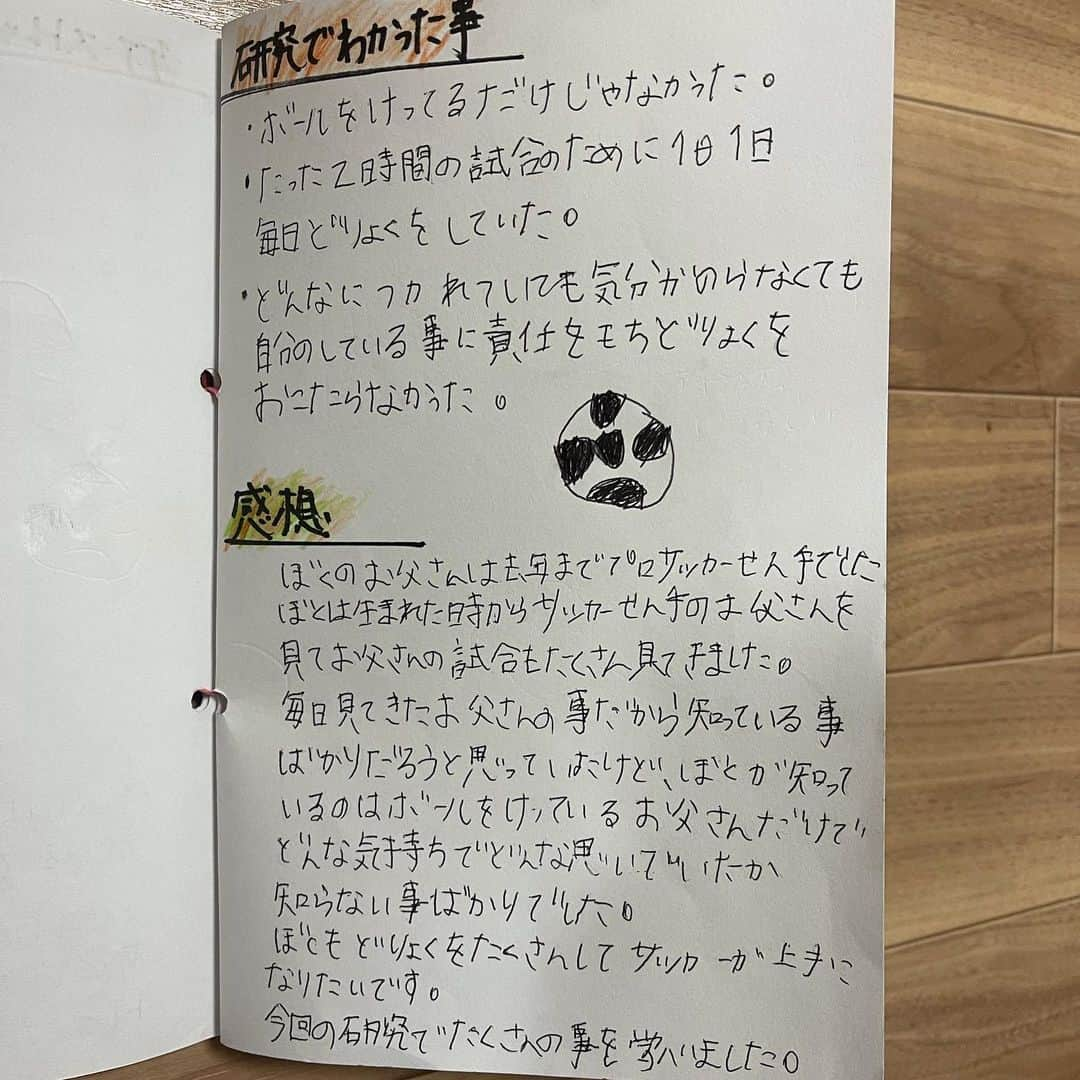 研究でわかった事
・ボールをけってるだけじゃなかった。
・たった2時間の試合のために1日1日
毎日どりょくをしていた。
・どんなにつかれていても気分がのらなくても
自分のしている事に責任をもちどりょくを
おこたらなかった。
感想
ぼくのお父さんは去年までプロサッカーせん手でした
ぼくは生まれた時からサッカーせん手のお父さんを
見てお父さんの試合もたくさん見てきました。
毎日見てきたお父さんの事だから知っている事
ばかりだろうと思っていたけど、ぼくが知って
いるのはボールをけっているお父さんだけで
どんな気持ちでどんな思いでいたか
知らない事ばかりでした。
ぼくもどりょくをたくさんしてサッカーが上手に
なりたいです。
今回の研究でたくさんの事を学びました。